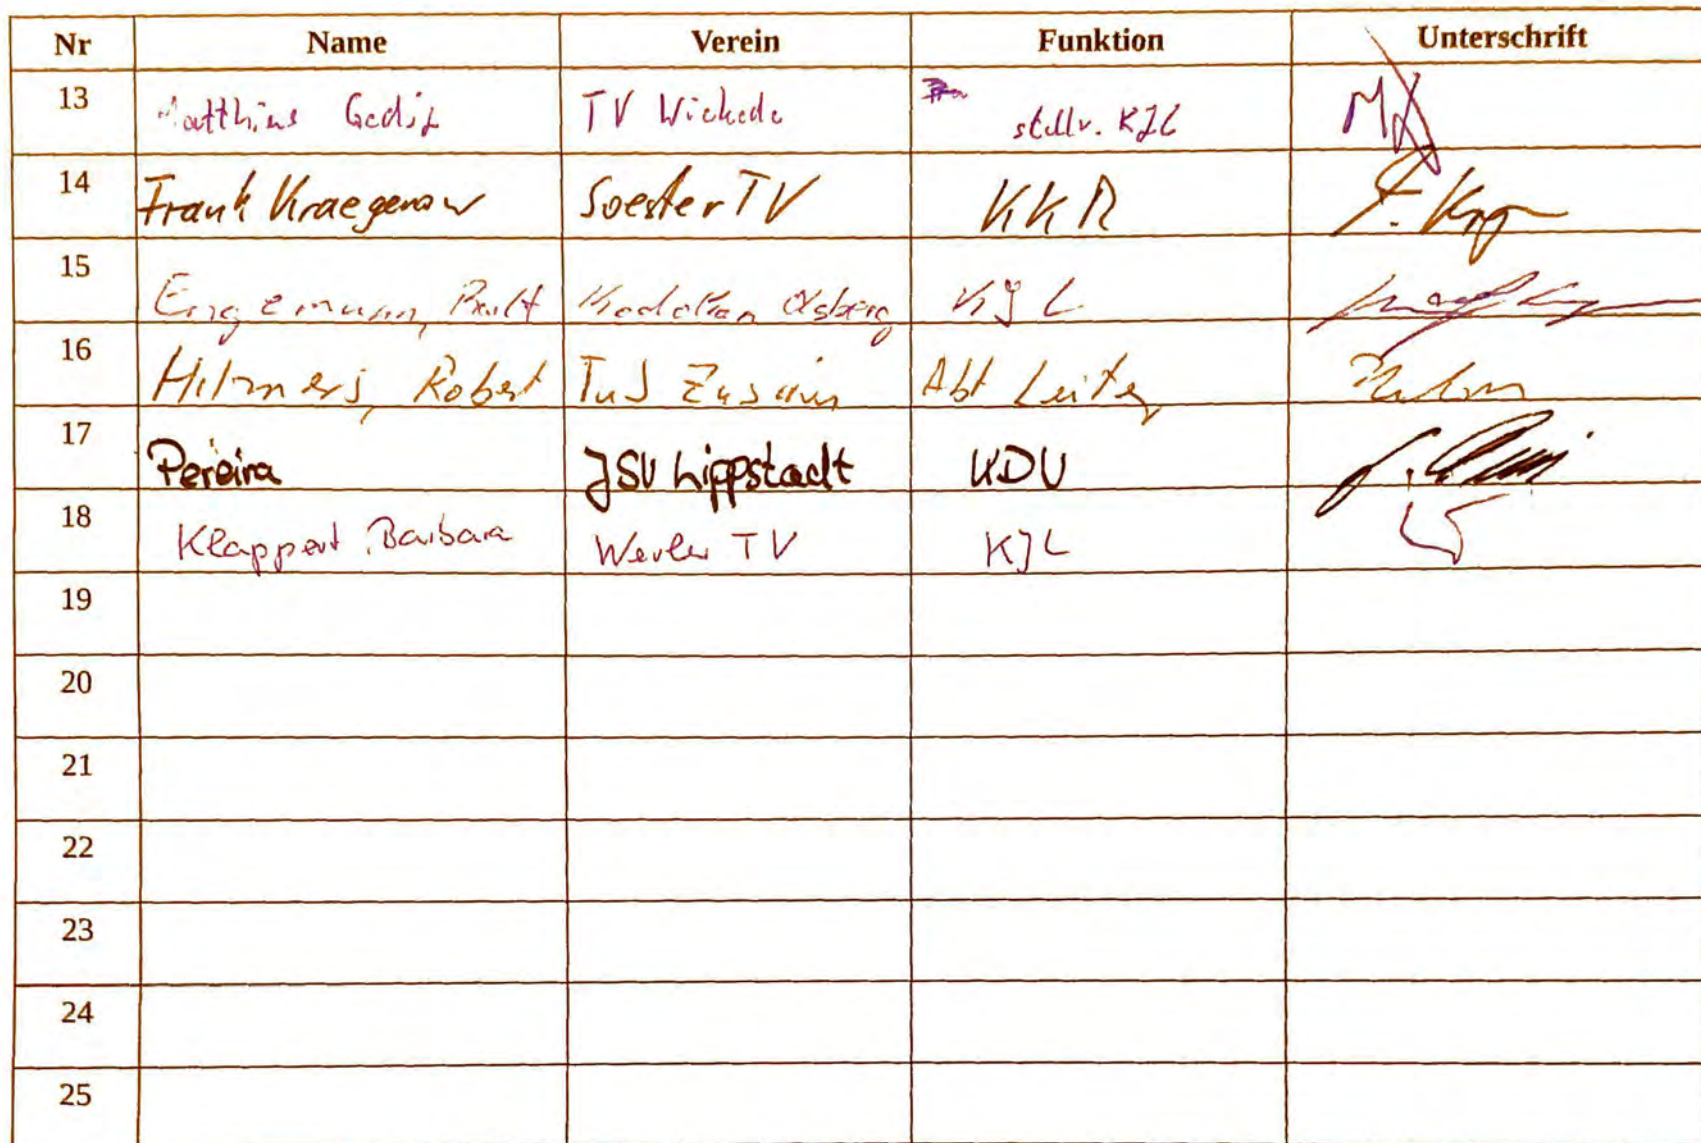 Nr Name Verein Funktion Unterschrift
13 Matthias TV Wickede stellv. KJL
14 Frank Kraegenow Soester TV KKR
15 Engemann, KJL
16 Robert TuS Abt Leiter
17 Pereira JSV Lippstadt KDV
18 Klappert, Barbara Werler TV KJL
19
20
21
22
23
24
25